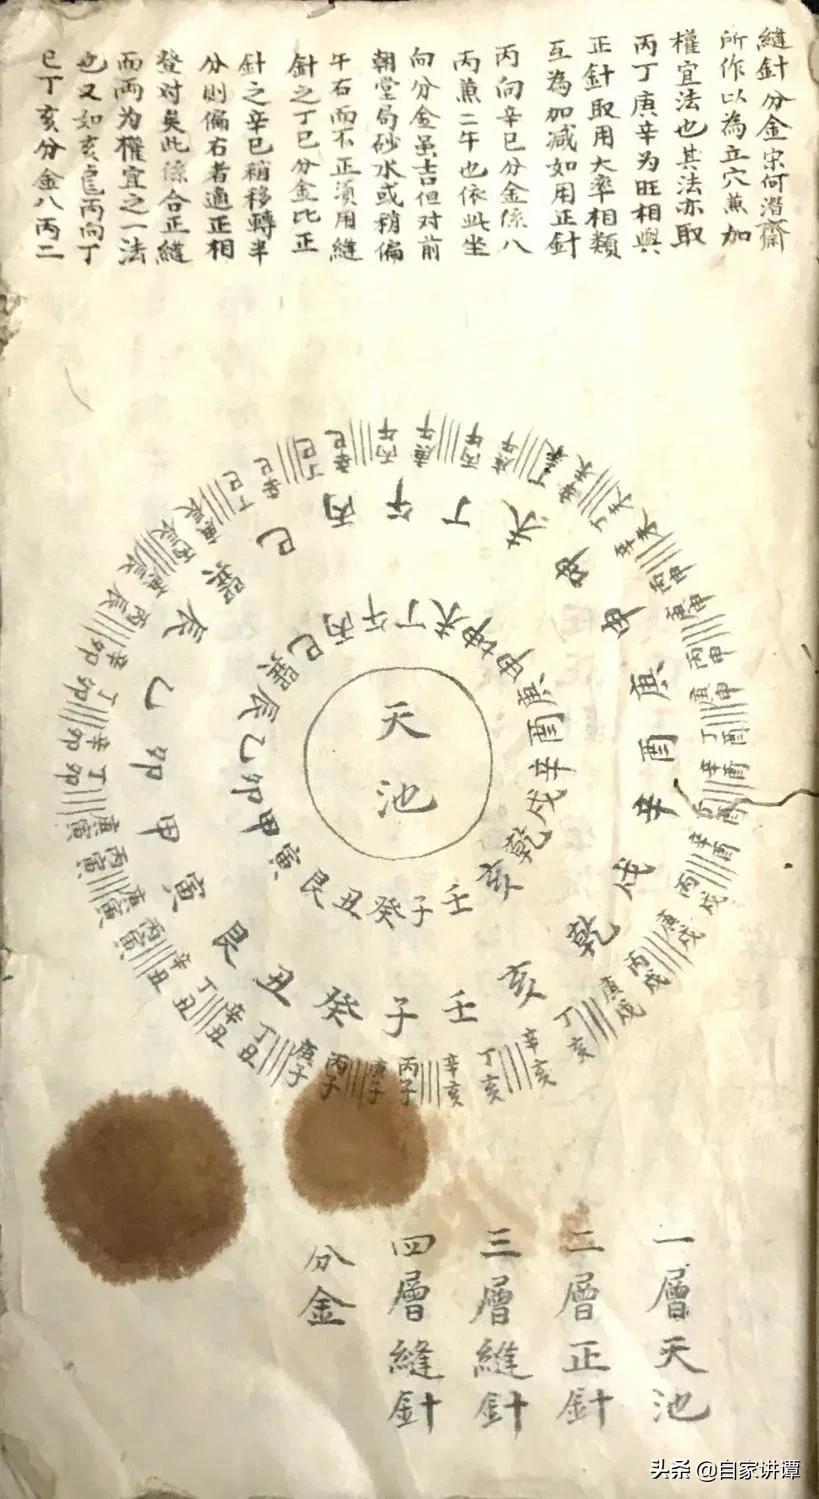 縫針分金宋何潛齋
所作以為立穴兼加
權宜法也其法亦取
丙丁庚辛为旺相與
正針取用大率相類
互為加減如用正針
丙向辛巳分金係八
丙兼二午也依此坐
向分金虽吉但对前
朝堂局砂水或稍偏
午右而不正須用縫
針之丁巳分金比正
針之辛巳稍移轉半
分則偏右者適正相
登对矣此係合正縫
而两为權宜之一法
也又如亥龍丙向丁
巳丁亥分金八丙二
天池
午丁未坤申庚酉辛戌乾亥壬子癸丑艮寅甲卯乙辰巽巳丙
午丁未坤申庚酉辛戌乾亥壬子癸丑艮寅甲卯乙辰巽巳丙
丙午 庚午 丙午 庚午 丁未 辛未 丁未 辛未 丙申 庚申 丙申 庚申 丁酉 辛酉 丁酉 辛酉 丙戌 庚戌 丙戌 庚戌 丁亥 辛亥 丁亥 辛亥 丙子 庚子 丙子 庚子 丁丑 辛丑 丁丑 辛丑 丙寅 庚寅 丙寅 庚寅 丁卯 辛卯 丁卯 辛卯 丙辰 庚辰 丙辰 庚辰 丁巳 辛巳 丁巳 辛巳
一層天池
二層正針
三層縫針
四層縫針
分金
头条 @自家讲谭